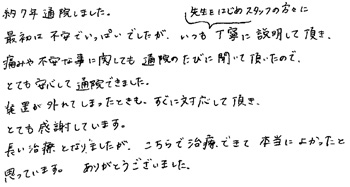 約7年通院しました。
先生をはじめスタッフの方々に
最初は不安でいっぱいでしたが、いつも丁寧に説明して頂き、
痛みや不安な事に関しても通院のたびに聞いて頂いたので、
とても安心して通院できました。
装置が外れてしまったときも、すぐに対応して頂き、
とても感謝しています。
長い治療となりましたが、こちらで治療できて本当によかったと
思っています。 ありがとうございました。